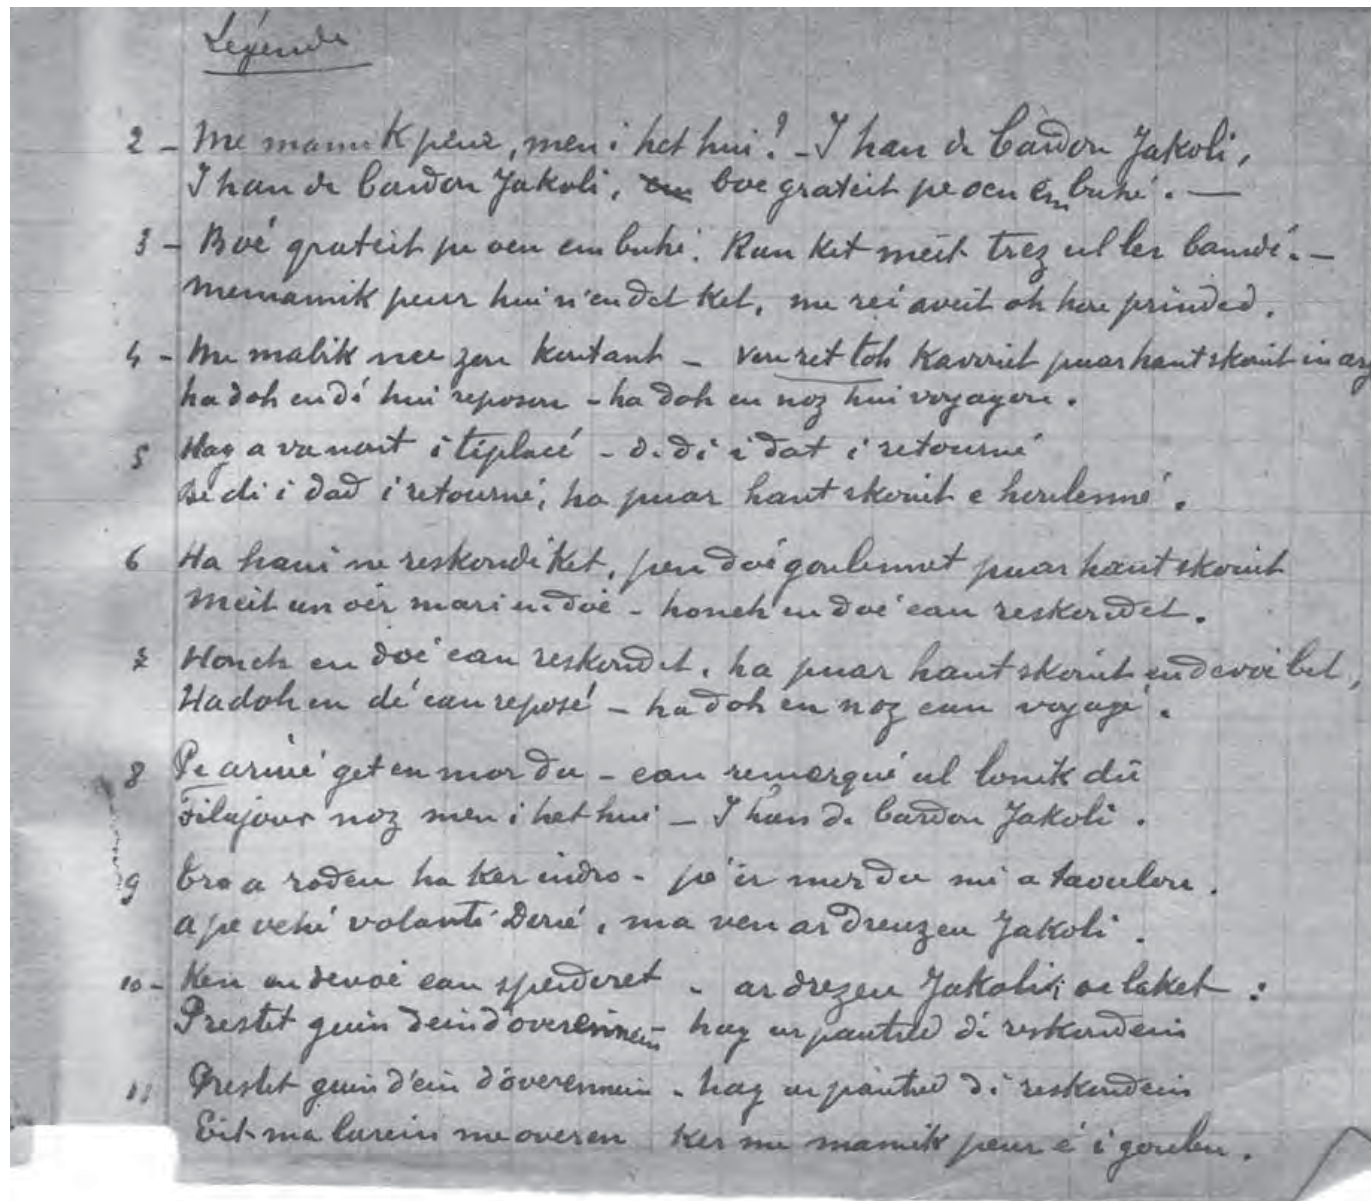 Légende
2 - Me mamik peur, men i het hui? - I han de bardon Jakoli,
I han de bardon Jakoli, boe grateit pe oen em buhé. —
3 - Boé grateit pe oen em buhé. Ran ket meit trez ul ler bamdé. -
Me mamik peur hui n'en det ket, me rei aveit oh hou prinded.
4 - Me mabik nee zou kontant - Ven ret toh kavouet puar hant skouit in
ha doh en dé hui reposou - ha doh en noz hui voyagou.
5 Hag a va nout i tiplacé - d. di i dat i retourné
de di i dad i retourné, ha puar hant skouit e houlenné.
6 Ha hani ne reskondé ket, pen doé goulennet puar hant skouit
Meit un oér mari en doé - honeh en doé ean reskondet.
7 Honeh en doé ean reskondet, ha puar hant skouit en devoé bet,
Ha doh en dé ean reposé - ha doh en noz ean voyagé.
8 Pe arivé get en mor du - ean remarqué ul lonik du
Filajour noz men i het hui - I han de bardon Jakoli.
9 Tro a roden ha ker indro - pe ir mor du mé a taoulou.
A pe vehé volanté Doué, ma ven ar dreuzen Jakoli.
10 - Ken en devoé ean speideret - ar drezen Jakoli; oe laket :
Prestet guin dein d'overennein - hag ur pautred di reskondein
11 Prestet guin d'ein d'overennein - hag ur pautred di reskondein
Eit ma larein me overen ker me mamik peur é i goulen.